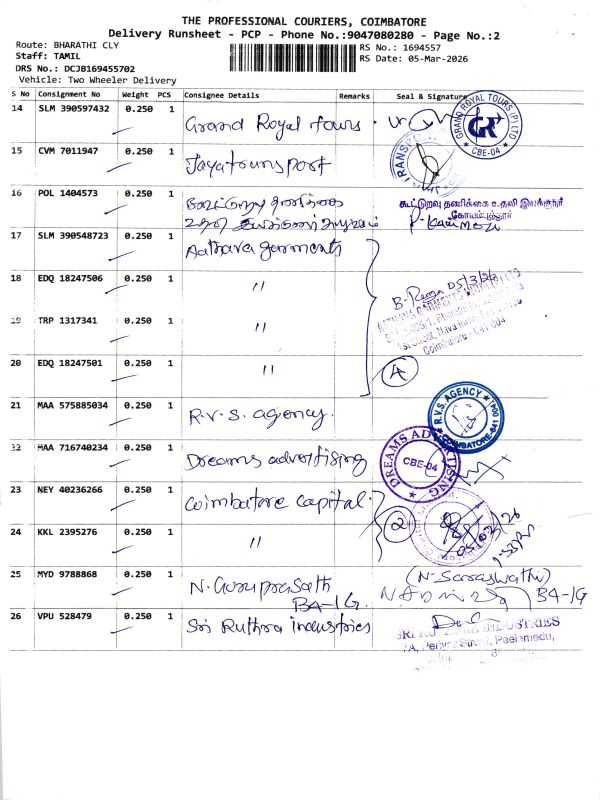 THE PROFESSIONAL COURIERS, COIMBATORE
Delivery Runsheet - PCP - Phone No.:9047080280 - Page No.:2
Route: BHARATHI CLY
RS No.: 1694557
Staff: TAMIL
RS Date: 05-Mar-2026
DRS No.: DCJB169455702
Vehicle: Two Wheeler Delivery
S No Consignment No Weight PCS Consignee Details Remarks Seal & Signature
14 SLM 390597432 0.250 1 Grand Royal tours.
GRAND ROYAL TOURS (P) LTD
GR
CBE-04
15 CVM 7011947 0.250 1 Jayatransport
16 POL 1404573 0.250 1
கூட்டுறவு தணிக்கை உதவி இயக்குநர்
கோயம்புத்தூர்
17 SLM 390548723 0.250 1 Aathava garments
18 EDQ 18247506 0.250 1 "
05/3/26
19 TRP 1317341 0.250 1 "
Coimbatore - 641 004
20 EDQ 18247501 0.250 1 " 4
21 MAA 575885034 0.250 1 R.V.S. agency.
R.V.S. AGENCY
COIMBATORE-641 004
22 MAA 716740234 0.250 1 Dreams advertising
DREAMS ADVERTISING
CBE-04
23 NEY 40236266 0.250 1 Coimbatore capital.
24 KKL 2395276 0.250 1 " 2
05/03/26
25 MYD 9788868 0.250 1 N. Guruprasath
B4-1G.
(N. Saraswathi)
B4-1G
26 VPU 528479 0.250 1 Sri Ruthra industries
INDUSTRIES
Peelamedu,